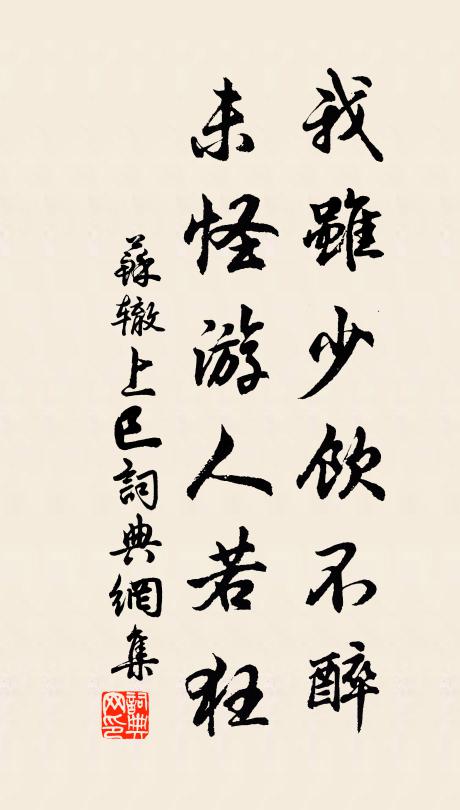 我雖少飲不醉
未怪游人若狂
蘇辙上巳詞典網集
詞典网印